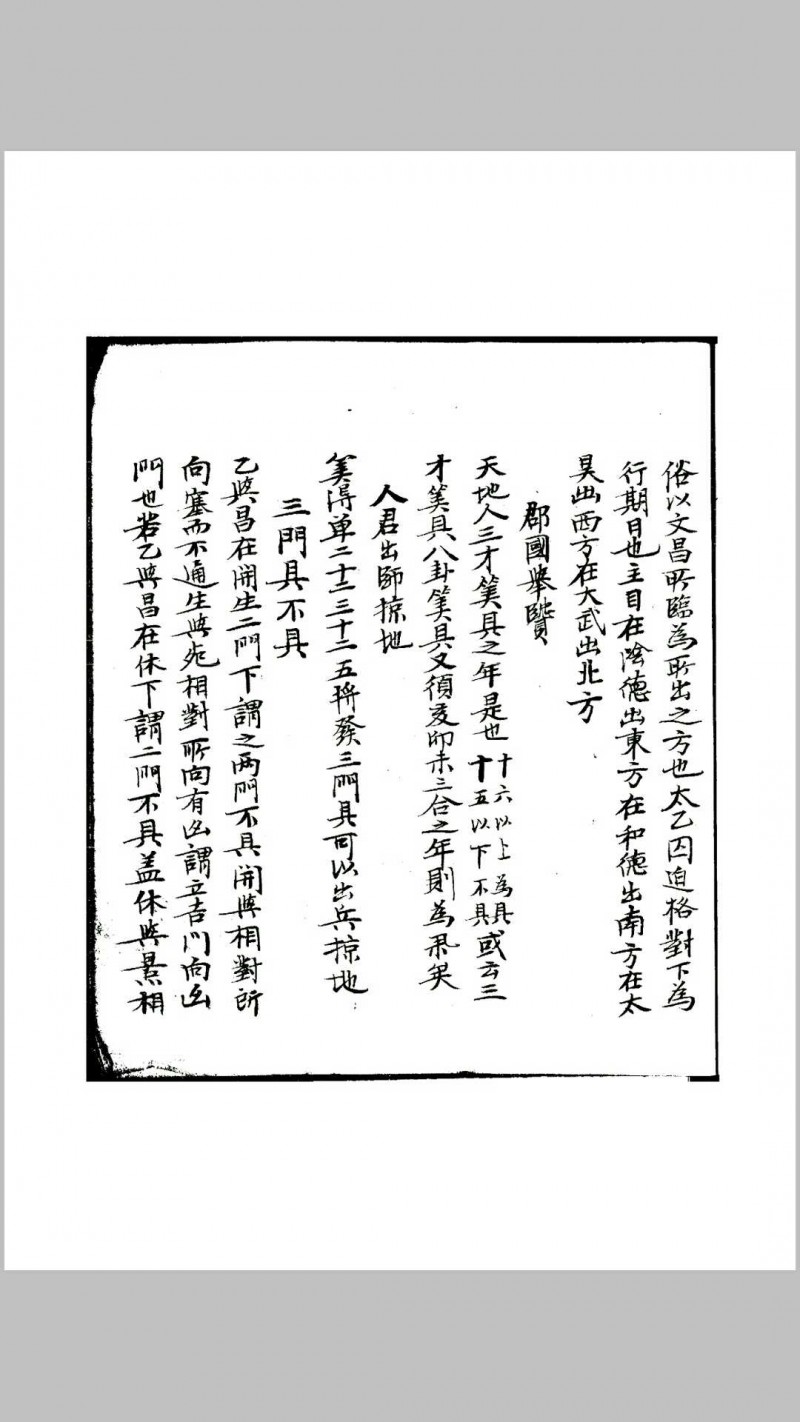 俗以文昌所臨為所出之方也太乙囚迫格對下為
行期日也主目在陰德出東方在和德出南方在太
昊出西方在大武出北方
郡國舉賢
天地人三才筭具之年是也十六以上為具十五以下不具或云三
才筭具八卦筭具又須亥卯未三合之年則為果矣
人君出師掠地
筭得单二十二三十二五將發三門具可以出兵掠地
三門具不具
乙與昌在開生二門下謂之两門不具開與相對所
向塞而不通生與死相對所向有凶謂立吉门向凶
門也若乙與昌在休下謂二門不具盖休與景相